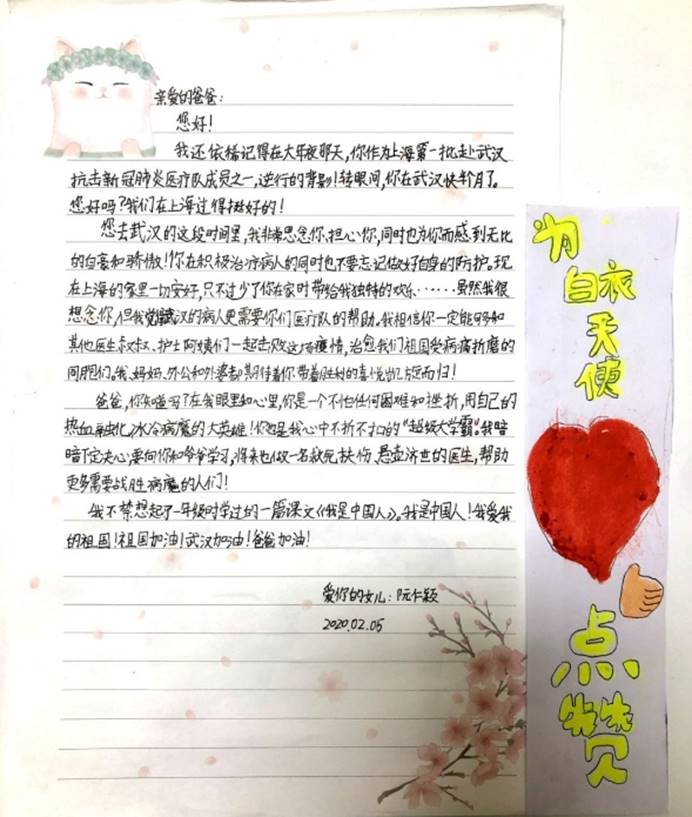 亲爱的爸爸：
您好！
我还依稀记得在大年夜那天，你作为上海第一批赴武汉
抗击新冠肺炎医疗队成员之一，逆行的背影！转眼间，你在武汉快半月了。
您好吗？我们在上海过得挺好的！
您去武汉的这段时间里，我非常思念你、担心你，同时也为你而感到无比
的自豪和骄傲！你在积极治疗病人的同时也不要忘记做好自身的防护。现
在上海的家里一切安好，只不过少了你在家时带给我独特的欢乐……虽然我很
想念你，但我觉武汉的病人更需要你们医疗队的帮助。我相信你一定能够和
其他医生叔叔、护士阿姨们一起击败这场疫情，治愈我们祖国受病痛折磨的
同胞们。我、妈妈、外公和外婆都期待着你带着胜利的喜悦凯旋而归！
爸爸，你知道吗？在我眼里和心里，你是一个不怕任何困难和挫折，用自己的
热血融化冰冷病魔的大英雄！你也是我心中不折不扣的“超级大学霸”。我暗
暗下定决心要向你和爷爷学习，将来也做一名救死扶伤、悬壶济世的医生，帮助
更多需要战胜病魔的人们！
我不禁想起了一年级时学过的一篇课文《我是中国人》。我是中国人！我爱我
的祖国！祖国加油！武汉加油！爸爸加油！
爱你的女儿：阮仁颖
2020.02.05
为
白衣
天
使
点
赞